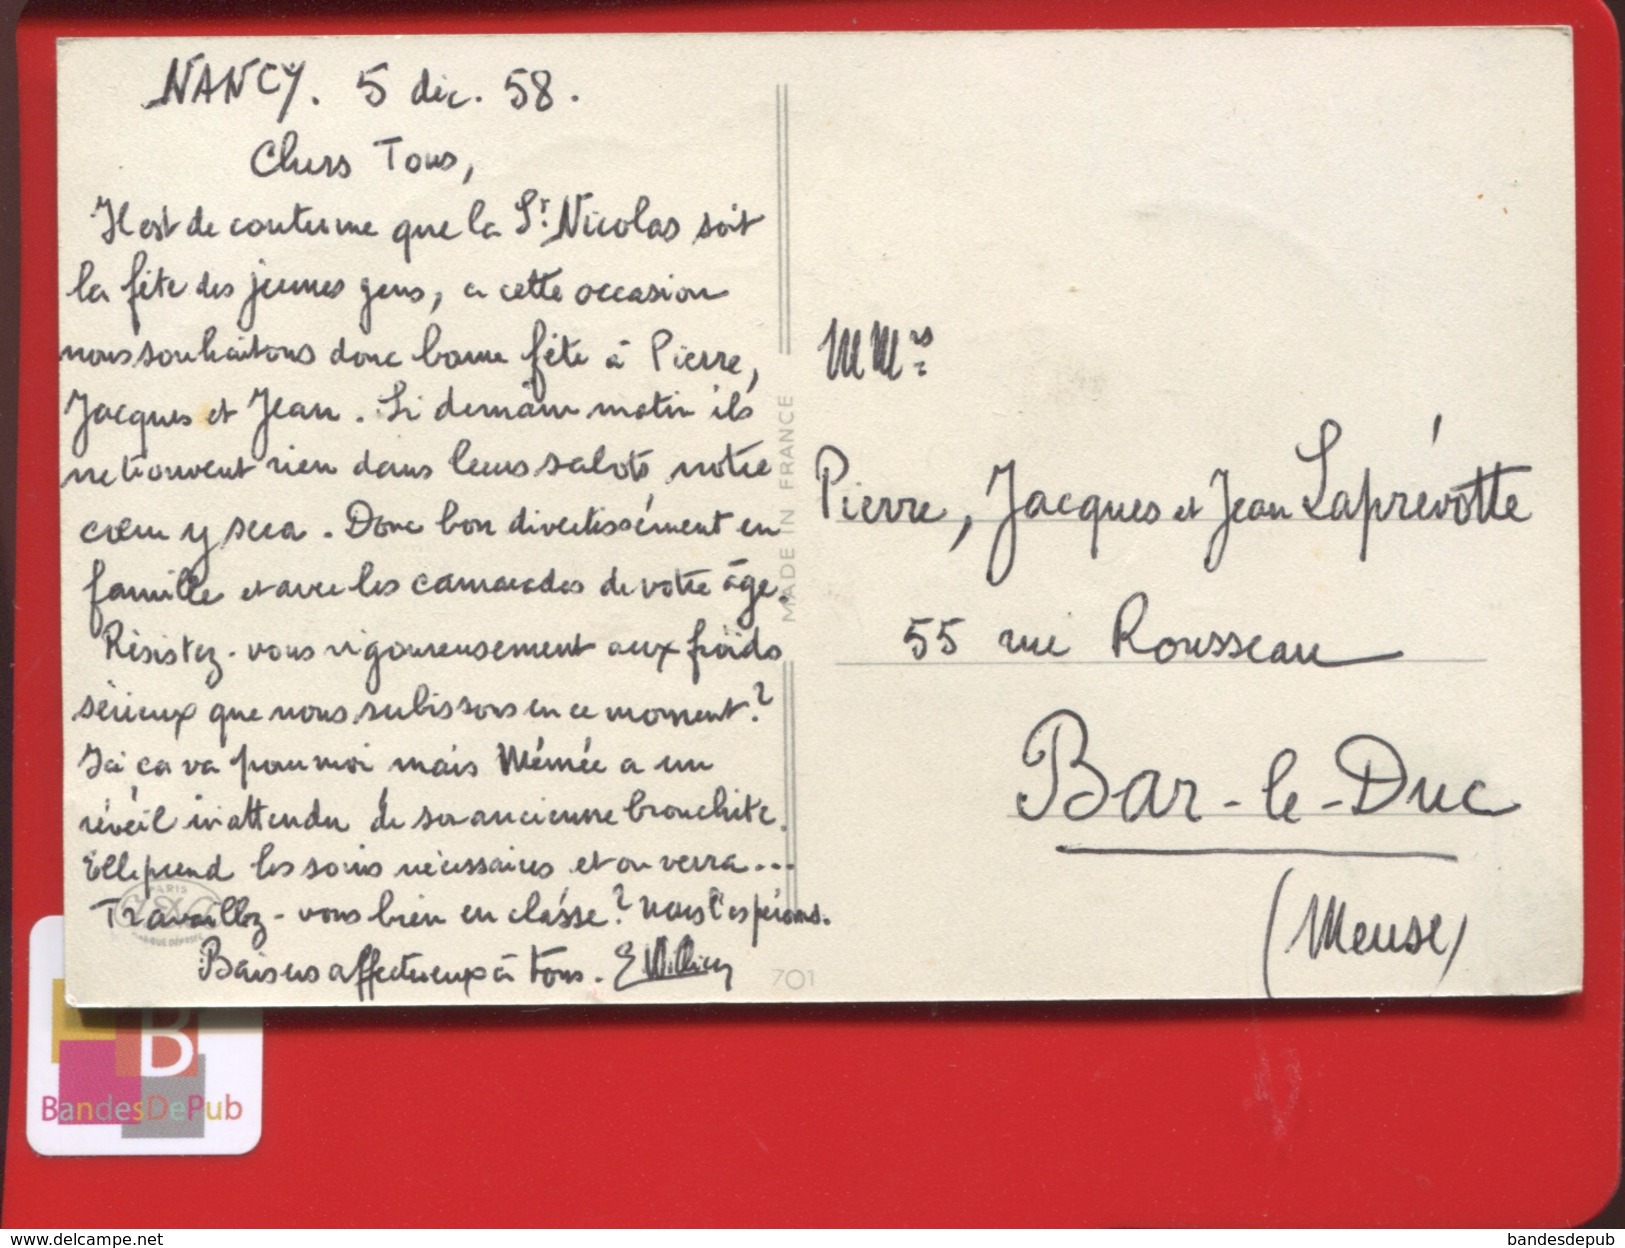 NANCY. 5 déc. 58.
Chers Tous,
Il est de coutume que la St. Nicolas soit
la fête des jeunes gens, à cette occasion
nous souhaitons donc bonne fête à Pierre,
Jacques et Jean. Si demain matin ils
ne trouvent rien dans leurs sabots notre
cœur y sera. Donc bon divertissément en
famille et avec les camarades de votre âge.
Résistez-vous vigoureusement aux froids
sérieux que nous subissons en ce moment?
Ici ça va pour moi mais Mémée a un
réveil inattendu de son ancienne bronchite.
Elle prend les soins nécessaires et on verra...
Travaillez-vous bien en classe? nous l'espérons.
Baisers affectueux à tous.
MMrs
Pierre, Jacques et Jean Laprévotte
55 rue Rousseau
Bar-le-Duc
(Meuse)
MADE IN FRANCE
PARIS
MARQUE DÉPOSÉE
701
B
BandesDePub
www.delcampe.net
bandesdepub